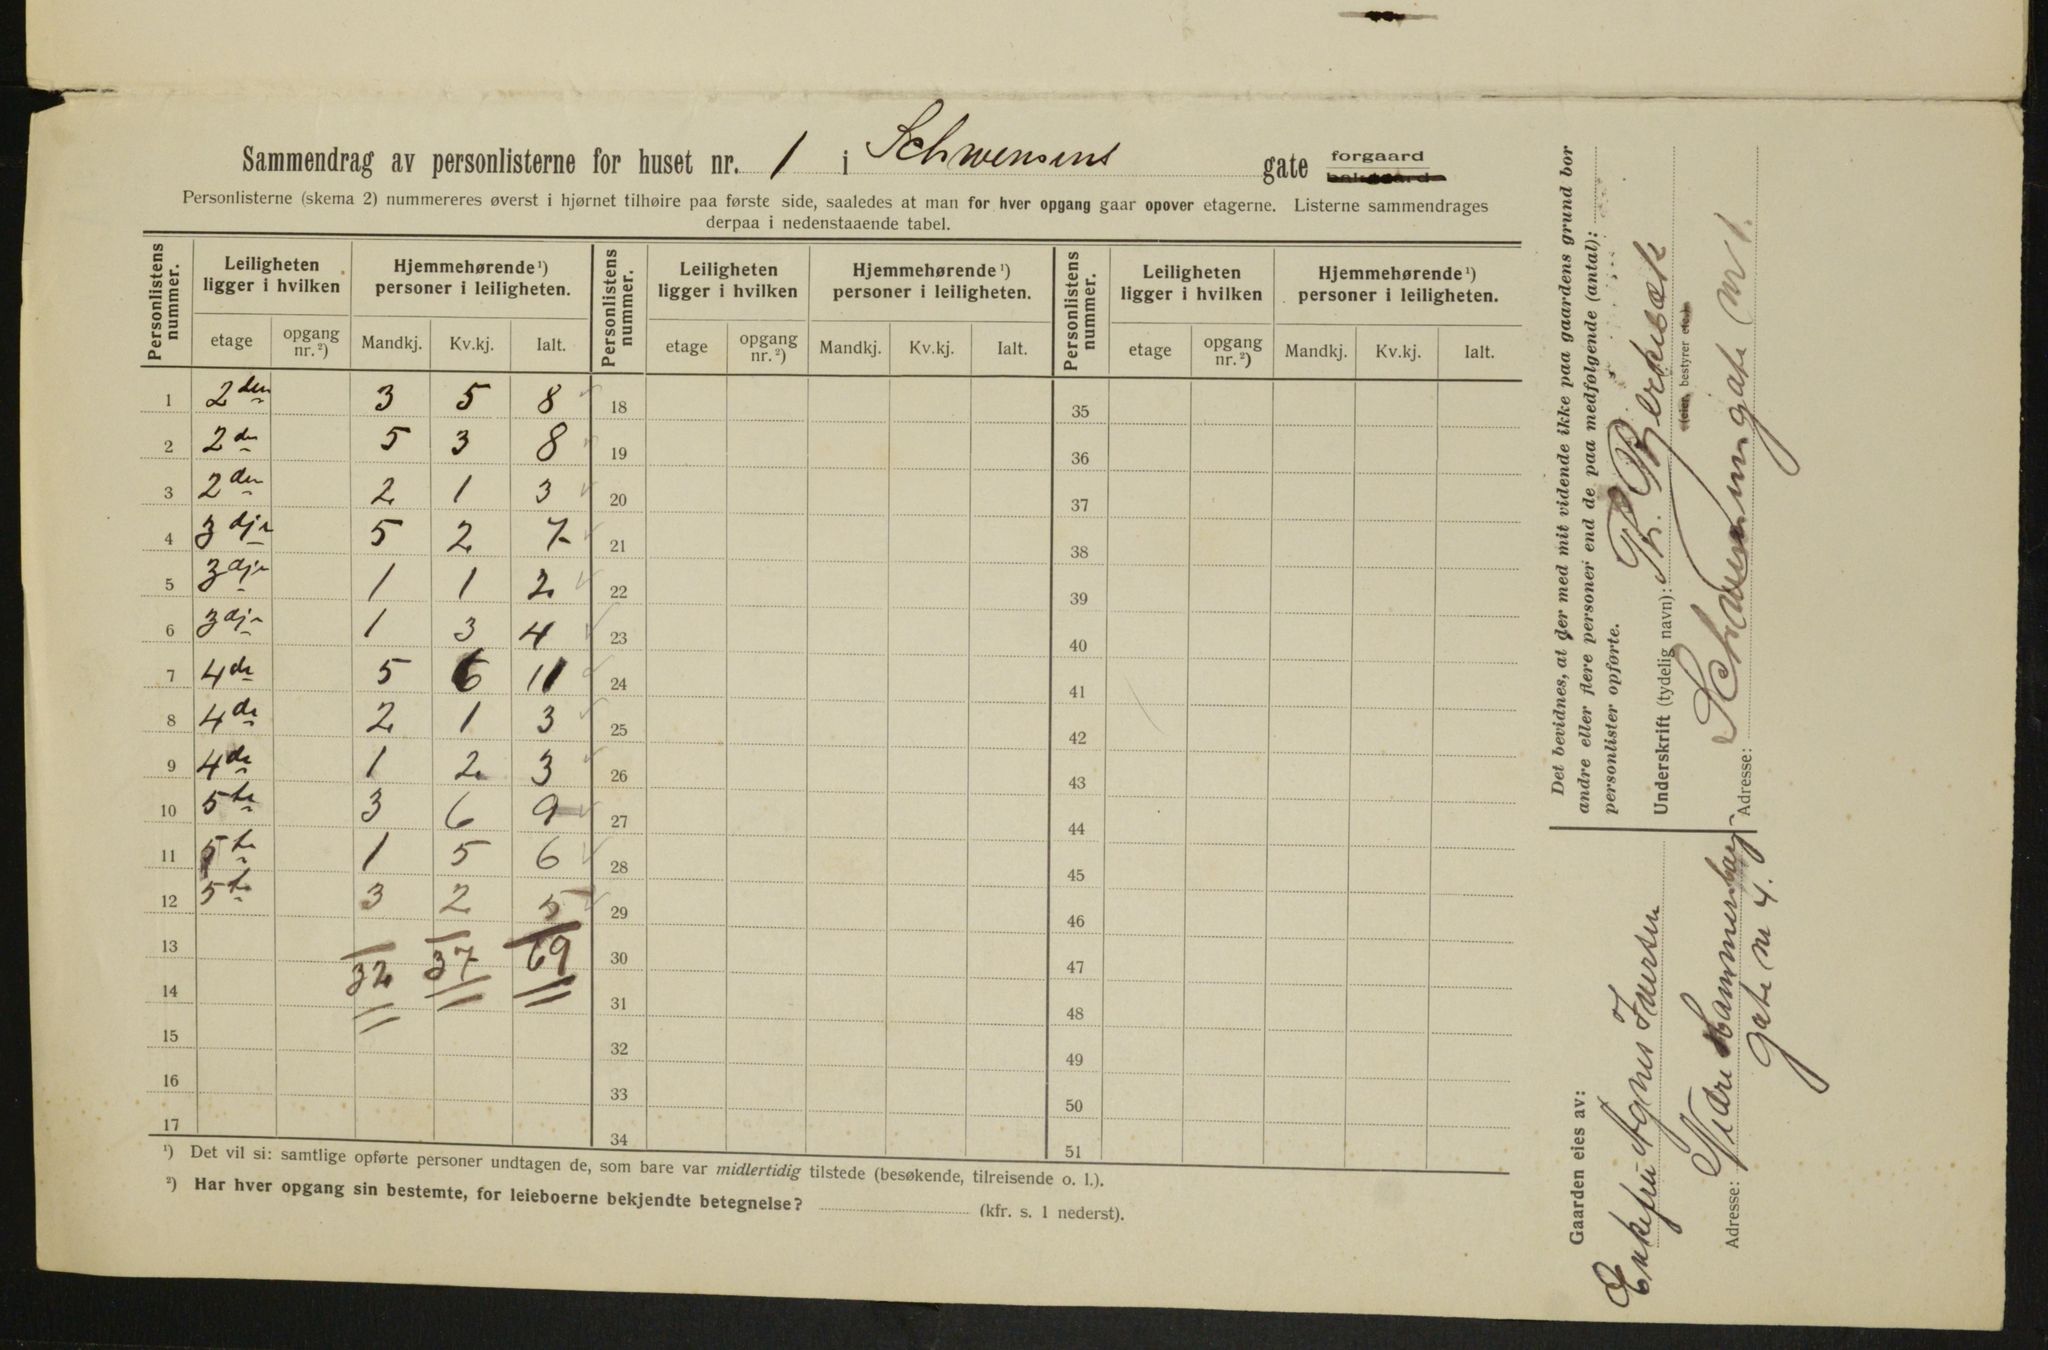 Sammendrag av personlisterne for huset nr. 1 i Schwensens gate forgaard
bakgaard
Personlisterne (skema 2) nummereres øverst i hjørnet tilhøire paa første side, saaledes at man for hver opgang gaar opover etagerne. Listerne sammendrages
derpaa i nedenstaaende tabel.
Personlistens nummer. Leiligheten ligger i hvilken Hjemmehørende ¹) personer i leiligheten. Personlistens nummer. Leiligheten ligger i hvilken Hjemmehørende ¹) personer i leiligheten. Personlistens nummer. Leiligheten ligger i hvilken Hjemmehørende ¹) personer i leiligheten.
etage opgang nr. ²) Mandkj. Kv.kj. Ialt. etage opgang nr. ²) Mandkj. Kv.kj. Ialt. etage opgang nr. ²) Mandkj. Kv.kj. Ialt.
1 2den 3 5 8 18 35
2 2den 5 3 8 19 36
3 2den 2 1 3 20 37
4 3dje 5 2 7 21 38
5 3dje 1 1 2 22 39
6 3dje 1 3 4 23 40
7 4de 5 6 11 24 41
8 4de 2 1 3 25 42
9 4de 1 2 3 26 43
10 5te 3 6 9 27 44
11 5te 1 5 6 28 45
12 5te 3 2 5 29 46
13 32 37 69 30 47
14 31 48
15 32 49
16 33 50
17 34 51
¹) Det vil si: samtlige opførte personer undtagen de, som bare var midlertidig tilstede (besøkende, tilreisende o. l.).
²) Har hver opgang sin bestemte, for leieboerne bekjendte betegnelse? (kfr. s. 1 nederst).
Det bevidnes, at der med mit vidende ikke paa gaardens grund bor
andre eller flere personer end de paa medfølgende (antal):
personlister opførte.
Underskrift (tydelig navn): Th. Bjerkebæk
(eier, bestyrer etc.)
Adresse: Schwensensgate nr 1.
Gaarden eies av:
Enkefru Agnes Iversen
Adresse: Nedre Hammersborg
gate nr 4.